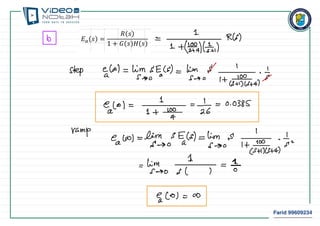 VIDEO NOTAK
TURN DATA TO SUCCESS
b E_a(s) = R(s) / (1 + G(s)H(s)) = 1 / (1 + (100/(s+4))(1/(s+1))) R(s)
step e_a(∞) = lim_{s→0} s E_a(s) = lim_{s→0} s 1 / (1 + 100/((s+1)(s+4))) · 1/s
e_a(∞) = 1 / (1 + 100/4) = 1/26 = 0.0385
ramp e_a(∞) = lim_{s→0} s E_a(s) = lim_{s→0} s 1 / (1 + 100/((s+1)(s+4))) · 1/s²
= lim_{s→0} 1 / (s ( )) = 1/0
e_a(∞) = ∞
Farid 99609234